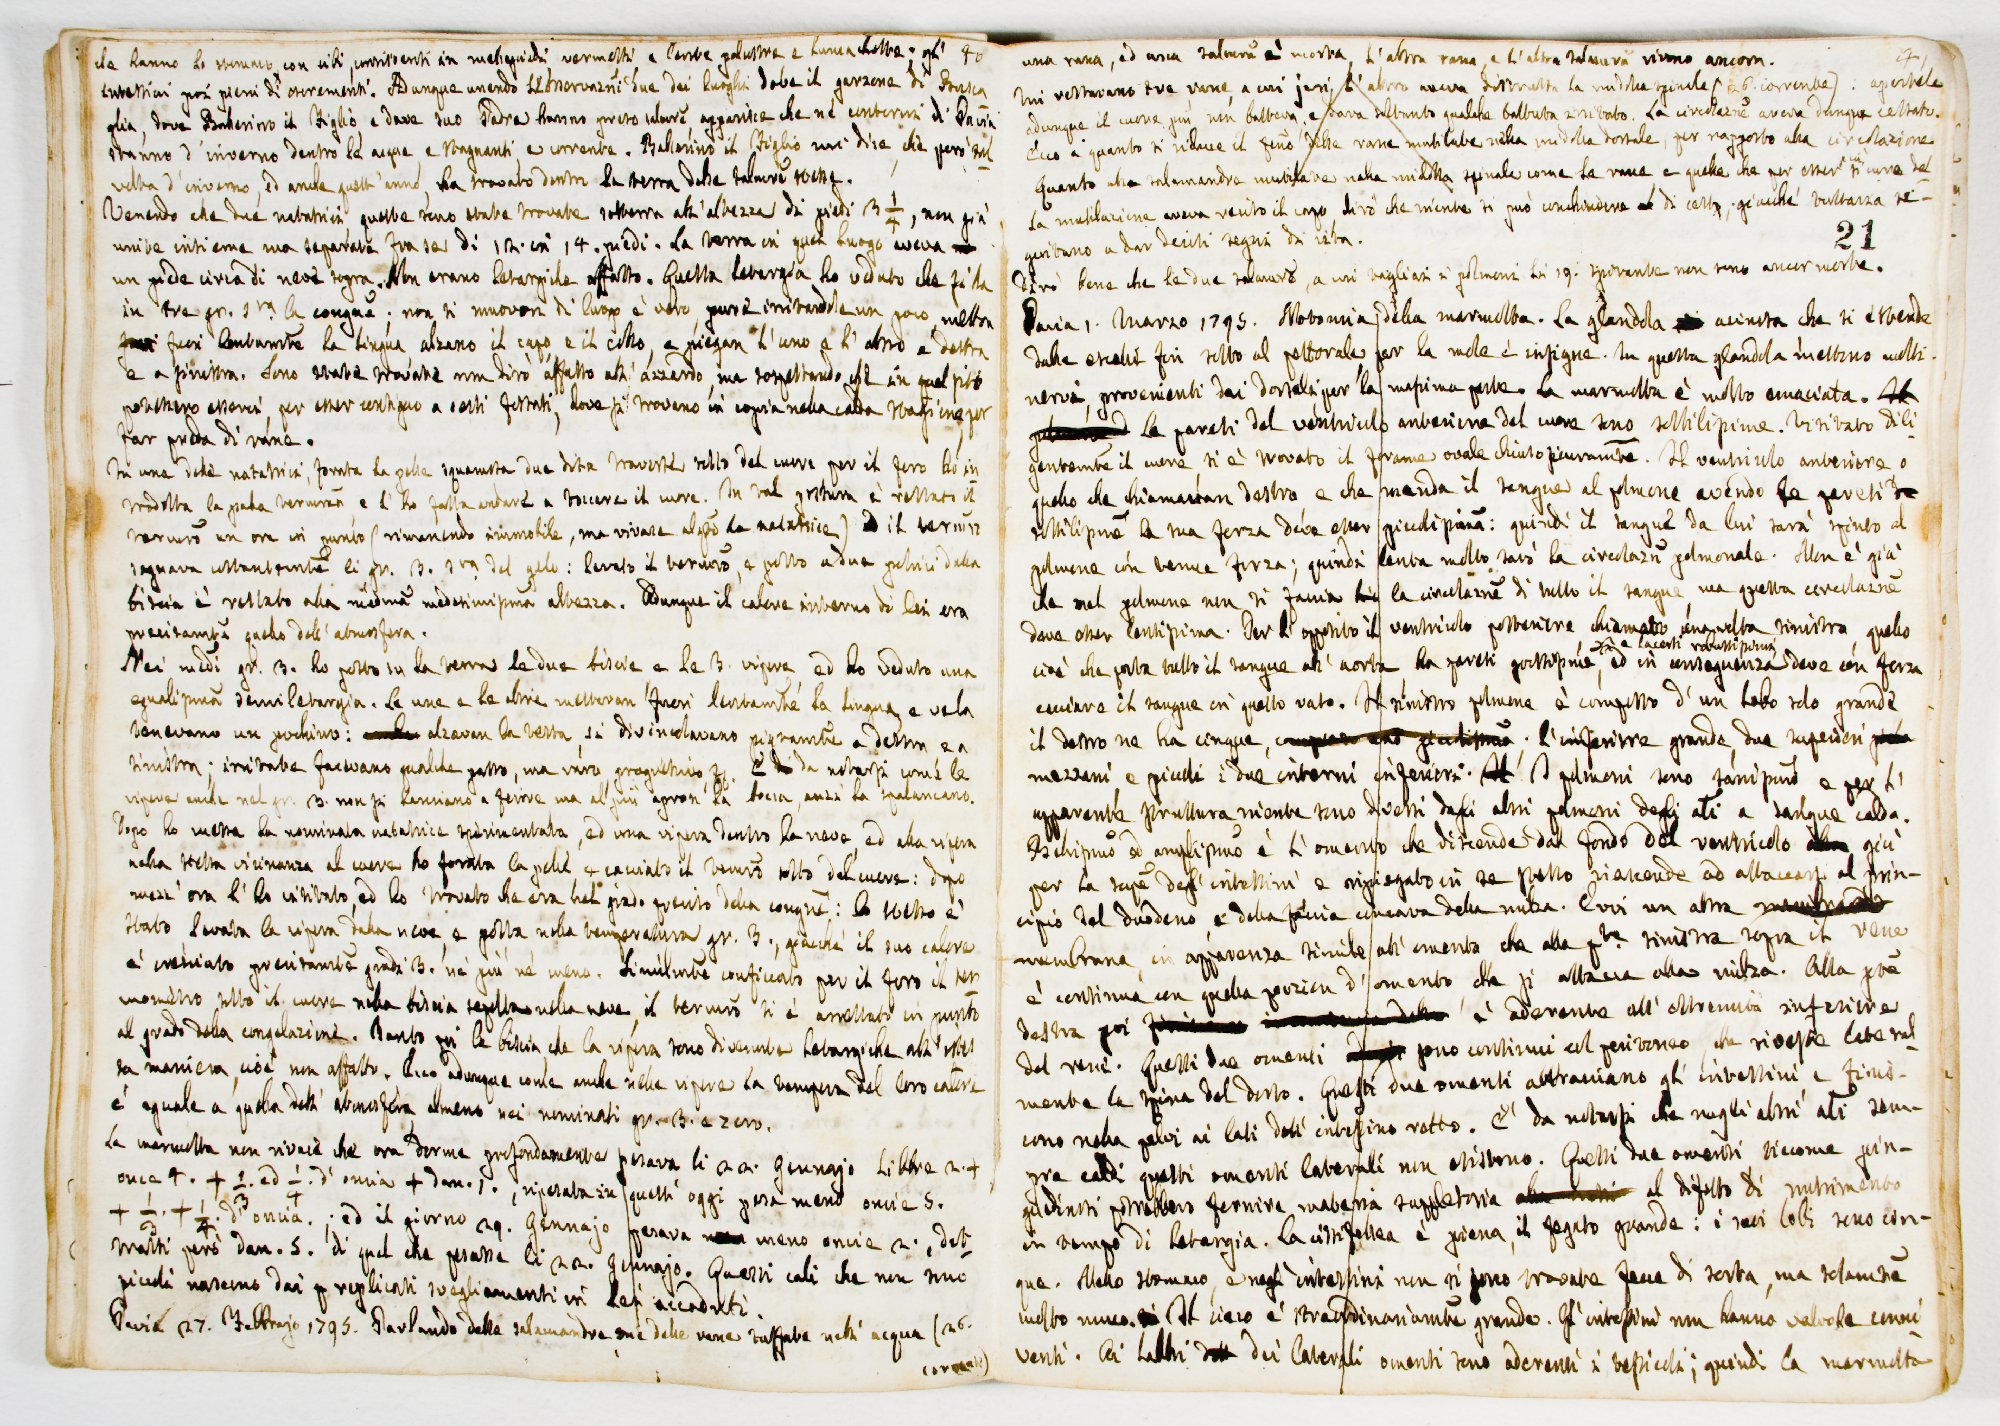 che hanno lo stomaco con cibi, consistenti in mezzi vermetti e l'erbe palustre e lumachette; gl' 40
intestini poi pieni di escrementi. Adunque unendo le osservazni due dei luoghi dove il garzone di
glia, dove Ballerino il Figlio e dove suo Padre hanno preso salamre apparisce che ne' contorni di Pavia
stanno d'inverno dentro le acque e stagnanti, e corrente. Ballerino il Figlio mi dice, che però tal
volta d'inverno, ed anche quest'anno ha trovato dentro la terra delle salamre stesse.
Venendo che due natatrici queste sono state trovate sotterra all'altezza di piedi 3 1/4, non già
unite insieme ma separate fra se di 12. in 14. piedi. La terra in quel luogo aveva
un piede circa di neve sopra. Non erano letargiche affatto. Questa letargia ho veduto che fa da
in tre gr. sra la congne. non si muovon di luogo è vero, pure irritandole un poco, metton
fuori lentamte la lingua alzano il capo e il collo, e piegan l'uno e l'altro a destra
e a sinistra. Sono state trovate non dirò affatto all'azzardo, ma sospettando che in quel sito
potessero esservi, per esser contiguo a certi fossati, dove si trovano in copia nella calda stagione, per
far preda di rane.
In una delle natatrici, forata la pelle squamosa due dita traverse sotto del cuore per il foro ho in
trodotta la palla termom e l'ho fatta andare a toccare il cuore. In tal positura è restato il
termom un ora in punto (rimanendo immobile, ma vivace alqto la natatrice) il termom
segnava costantemte li gr. 3. sra del gelo: levato il termom, e posto a due pollici dalla
biscia è restato alla medma medesimissima altezza. Adunque il calore interno di lei era
precisamte quello dell'atmosfera.
Nei medi gr. 3. ho posto su la terra le due biscie e le 3. vipere, ed ho veduto una
egualissma semiletargia. Le une e le altre mettevan fuori lentamte la lingua e ve la
tenevano un pochino: alzavan la testa, si divincolavano pigramte a destra e a
sinistra; irritate facevano qualche passo, ma raro progressivo, E' da notarsi come le
vipere anche nel gr. 3. non si lanciano a ferire ma al più apron la bocca, anzi la spalancano.
Dopo ho messa la nominata natatrice sperimentata, ed una vipera dentro la neve, ed alla vipera
nella stessa vicinanza al cuore ho forata la pelle e cacciato il termom sotto del cuore: dopo
mezz'ora l'ho visitato, ed ho trovato che era nel grado preciso della congne: lo stesso è
stato levata la vipera dalla neve, e posta nella temperatura gr. 3., giacchè il suo calore
è cresciuto precisamte gradi 3. nè più nè meno. Similmte conficcato per il foro il ter
mometro sotto il cuore nella biscia sepolta nella neve, il termom si è arrestato in punto
al grado della congelazione. Tanto poi la biscia che la vipera sono divenute letargiche all'stes
sa maniera, cioè non affatto. Ecco adunque come anche nelle vipere la tempera del loro calore
è eguale a quella dell'atmosfera almeno nei nominati gr. 3. e zero.
La marmotta non vivace che ora dorme profondamente pesava li 22. Gennajo Libbre 2. +
once 4. + 2/3. ed 1/4. d'oncia + dan. 1., ripesata in quest'oggi pesa meno oncie 5.
+ 1/2. + 1/4. d'oncia.; ed il giorno 29. Gennajo pesava meno oncie 2., det
tratti però dan. 5. di quel che pesasse li 22. Gennajo. Questi cali che non sono
piccoli nascono dai replicati svegliamenti in lei accaduti.
Pavia 27. Febbrajo 1795. Parlando delle salamandre, e delle rane tuffate nell'acqua (26.
corrente)
una rana, ed una salamra è morta, l'altra rana, e l'altra salamra vivono ancora. 41
Mi restavano tre rane, a cui jeri, l'altro aveva distrutta la midolla spinale (26. corrente): apertele
adunque il cuore più non batteva, e dava soltanto qualche battuta irritato. La circolazne aveva dunque cessato.
Ecco a quanto si riduce il fenno delle rane mutilate nella midolla dorsale, per rapporto alla circolazione
Quanto alle salamandre mutilate nella midolla spinale come le rane e quelle che per esser vive del
la mutilazione aveva reciso il capo dirò che niente si può conchiudere di certo, giacchè tuttavia se-
guitano a dar deciti segni di vita.
21
Dirò bene che le due salamre, a cui tagliai i polmoni li 19. spirante non sono ancor morte.
Pavia 1. Marzo 1795. Notomia della marmotta. La glandola acinosa che si estende
dalle ascelle fin sotto al pettorale, per la mole è insigne. In questa glandola mettono molti
nervi, provenienti dai dorsali per la massima parte. La marmotta è molto emaciata.
Le pareti del ventricolo anteriore del cuore sono sottilissime. Visitato dili
gentemte il cuore si è trovato il forame ovale chiuso sicuramte. Il ventricolo anteriore o
quello che chiamavan destro e che manda il sangue al polmone avendo le pareti
sottilissme la sua forza deve esser piccolissma: quindi il sangue da lui sarà spinto al
polmone con tenue forza; quindi lenta molto sarà la circolazne polmonale. Non è già
che nel polmone non si faccia la circolazne di tutto il sangue, ma questa circolazne
deve esser lentissima. Per l'opposto il ventricolo posteriore chiamato una volta sinistro, quello
cioè che porta tutto il sangue all'aorta, ha pareti grossissme, e lacerti robustissimi ed in conseguenza deve con forza
cacciare il sangue in questo vaso. Il sinistro polmone è composto d'un lobo solo grande
il destro ne ha cinque, l'inferiore grande, due superiori
mezzani, e piccoli i due interni inferiori. I polmoni sono sanissmi e per l'
apparente struttura niente sono diversi dagli altri polmoni degli ali a sangue caldo.
ed amplissmo è l'omento che discende dal fondo del ventricolo giù
per la supe degl'intestini e ripiegato in se stesso riascende ad attaccarsi al prin-
cipio del duodeno, e della faccia concava della milza. Evvi un altra
membrana, in apparenza simile all'omento che alla pte sinistra sopra il rene
è continua con quella porzion d'omento che si attacca alla milza. Alla pte
destra poi è aderente all'estremità inferiore
del rene. Questi due omenti sono continui col peritoneo, che riveste lateral
mente la spina del dorso. Questi due omenti abbracciano gl'intestini e finis-
cono nella pelvi ai lati dell'intestino retto. E' da notarsi che negli altri ali sem-
pre caldi questi omenti laterali non esistono. Questi due omenti siccome pin-
guedinosi potrebbero fornire materia suppletoria al difetto di nutrimento
in tempo di letargia. La cistifellea è piena, il fegato grande: i suoi lobi sono cin-
que. Nello stomaco, e negl'intestini non si sono trovate fecce di sorta, ma solamte
molto muco. Il cieco è straordinariamte grande. Gl'intestini non hanno valvole conni
venti. Ai labbri dei laterali omenti sono aderenti i testicoli; quindi la marmotta